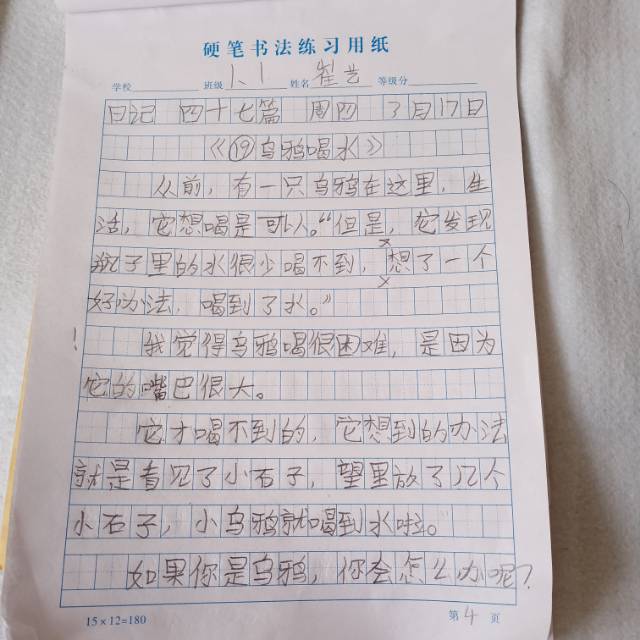 硬笔书法练习用纸
学校 班级 1、1 姓名 崔 等级分
日记 四十七篇 周四 7月17日
《⑲乌鸦喝水》
从前，有一只乌鸦在这里，生
活，它想喝是可人。“但是，它发现
瓶子里的水很少喝不到，想了一个
好办法，喝到了水。”
我觉得乌鸦喝很困难，是因为
它的嘴巴很大。
它才喝不到的，它想到的办法
就是看见了小石子，望里放了几个
小石子，小乌鸦就喝到水啦。
如果你是乌鸦，你会怎么办呢？
15×12=180 第 4 页